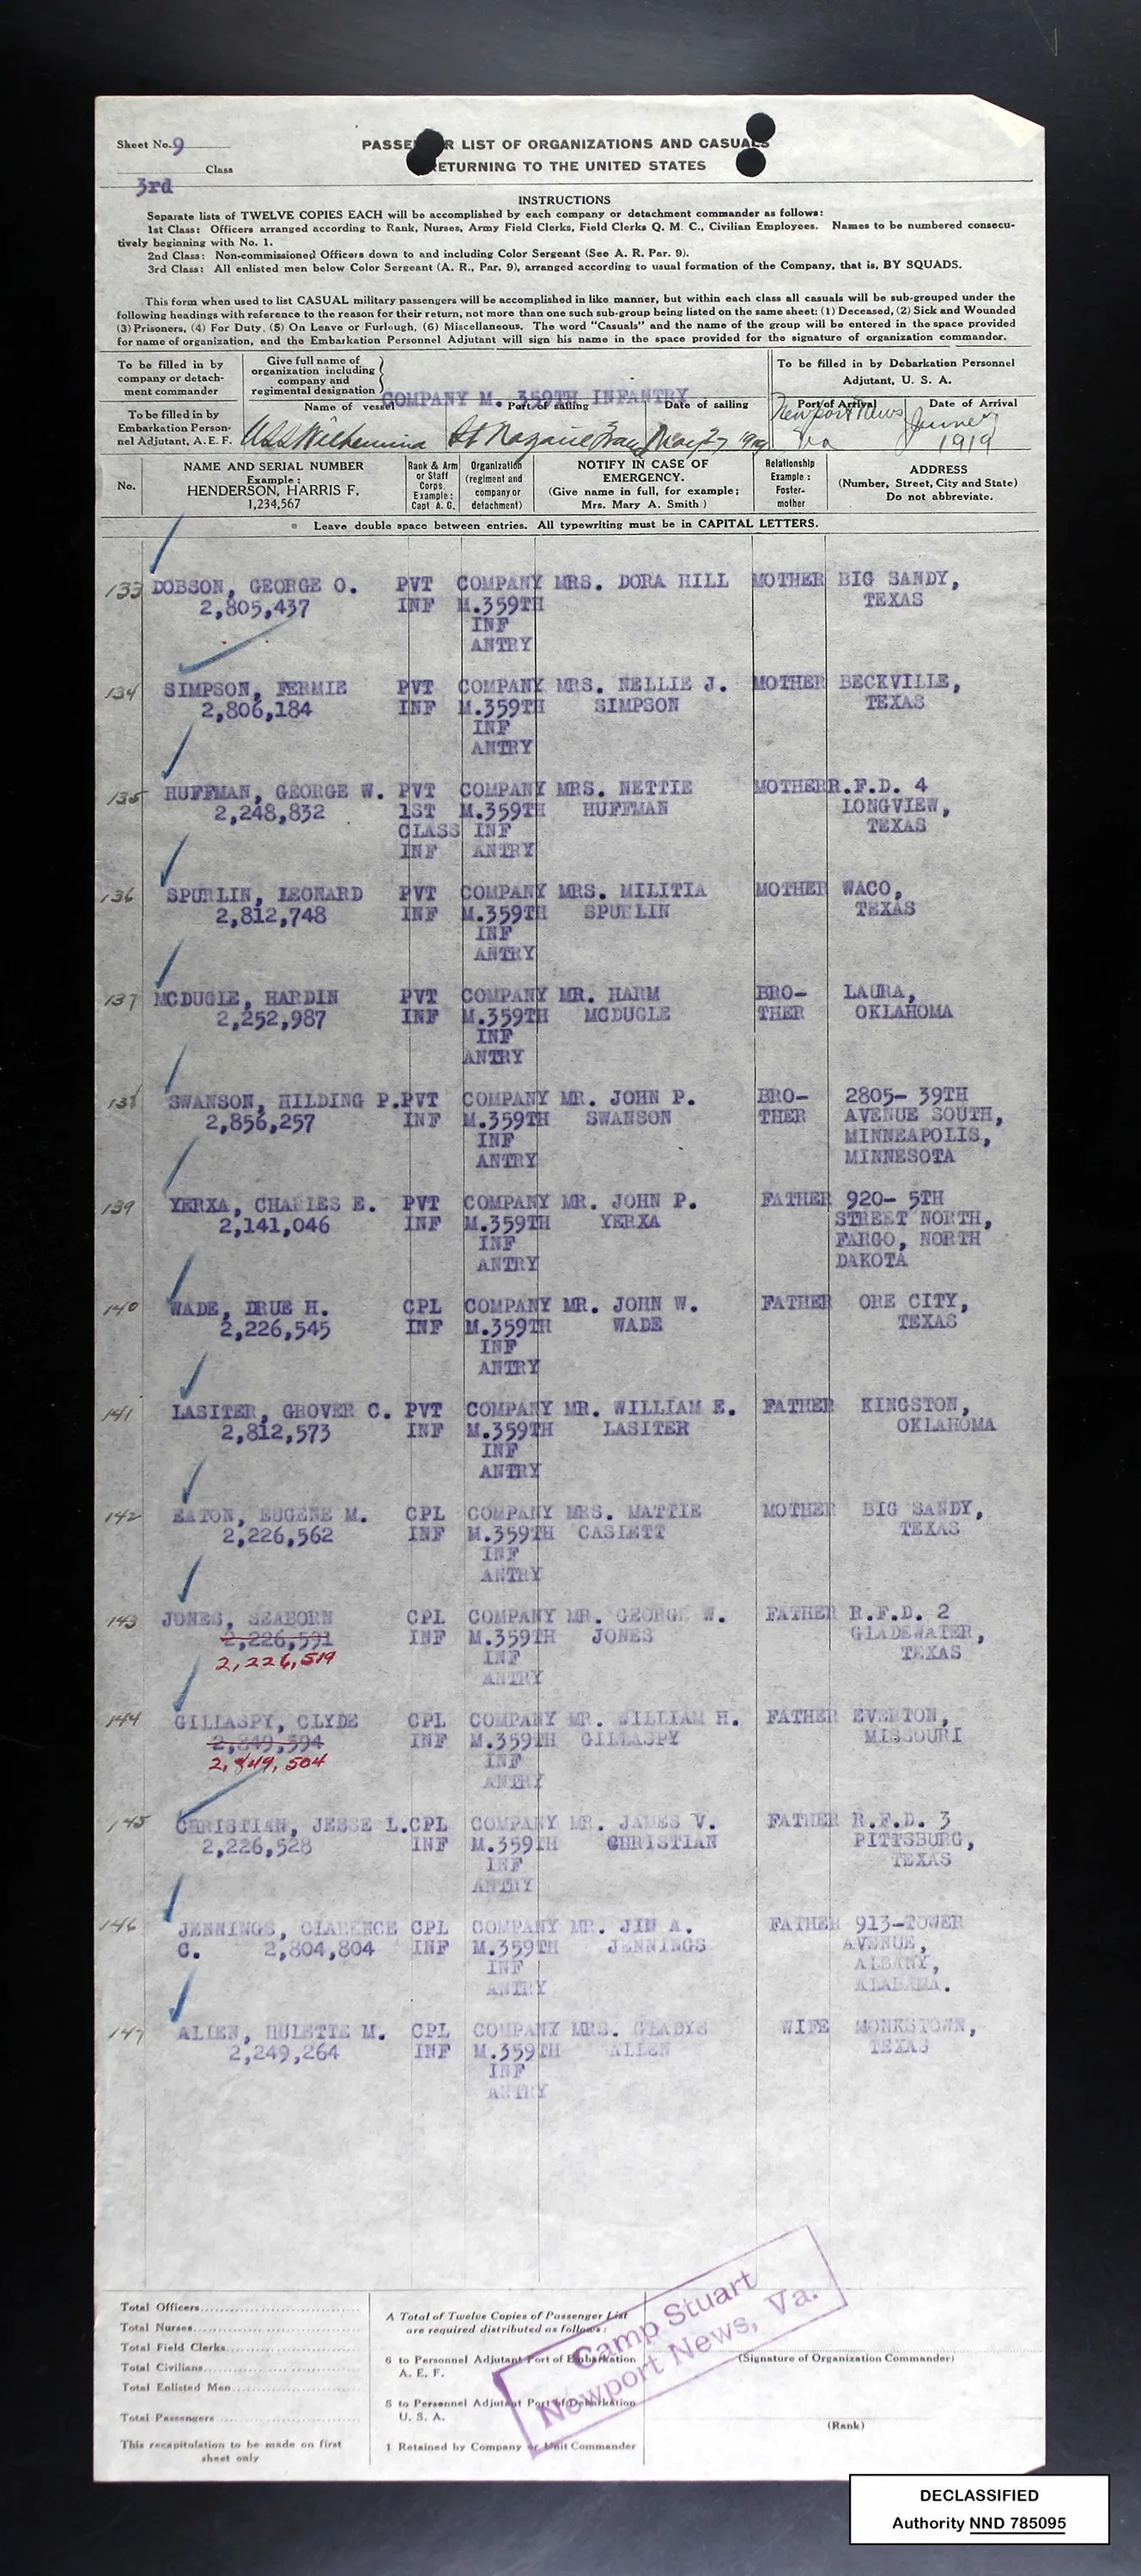 Sheet No. 9
3rd Class
PASSENGER LIST OF ORGANIZATIONS AND CASUALS
RETURNING TO THE UNITED STATES
INSTRUCTIONS
Separate lists of TWELVE COPIES EACH will be accomplished by each company or detachment commander as follows:
1st Class: Officers arranged according to Rank, Nurses, Army Field Clerks, Field Clerks Q. M. C., Civilian Employees. Names to be numbered consecu-
tively beginning with No. 1.
2nd Class: Non-commissioned Officers down to and including Color Sergeant (See A. R. Par. 9).
3rd Class: All enlisted men below Color Sergeant (A. R., Par. 9), arranged according to usual formation of the Company, that is, BY SQUADS.
This form when used to list CASUAL military passengers will be accomplished in like manner, but within each class all casuals will be sub-grouped under the
following headings with reference to the reason for their return, not more than one such sub-group being listed on the same sheet: (1) Deceased, (2) Sick and Wounded
(3) Prisoners, (4) For Duty, (5) On Leave or Furlough, (6) Miscellaneous. The word "Casuals" and the name of the group will be entered in the space provided
for name of organization, and the Embarkation Personnel Adjutant will sign his name in the space provided for the signature of organization commander.
To be filled in by
company or detach-
ment commander
Give full name of
organization including
company and
regimental designation
COMPANY M. 359TH INFANTRY
To be filled in by Debarkation Personnel
Adjutant, U. S. A.
To be filled in by
Embarkation Person-
nel Adjutant, A. E. F.
Name of vessel
Port of sailing
Date of sailing
Port of Arrival
Date of Arrival
USS Wilhelmina
St Nazaire France
May 27 1919
Newport News
Va
June 7
1919
No.
NAME AND SERIAL NUMBER
Example:
HENDERSON, HARRIS F.
1,234,567
Rank & Arm
or Staff
Corps.
Example:
Capt A. G.
Organization
(regiment and
company or
detachment)
NOTIFY IN CASE OF
EMERGENCY.
(Give name in full, for example;
Mrs. Mary A. Smith)
Relationship
Example:
Foster-
mother
ADDRESS
(Number, Street, City and State)
Do not abbreviate.
Leave double space between entries. All typewriting must be in CAPITAL LETTERS.
133 DOBSON, GEORGE O. PVT COMPANY MRS. DORA HILL MOTHER BIG SANDY,
2,805,437 INF M.359TH TEXAS
INF
ANTRY
134 SIMPSON, FERMIE PVT COMPANY MRS. NELLIE J. MOTHER BECKVILLE,
2,806,184 INF M.359TH SIMPSON TEXAS
INF
ANTRY
135 HUFFMAN, GEORGE W. PVT COMPANY MRS. NETTIE MOTHER R.F.D. 4
2,248,832 1ST M.359TH HUFFMAN LONGVIEW,
CLASS INF TEXAS
INF ANTRY
136 SPURLIN, LEONARD PVT COMPANY MRS. MILITIA MOTHER WACO,
2,812,748 INF M.359TH SPURLIN TEXAS
INF
ANTRY
137 MCDUGLE, HARDIN PVT COMPANY MR. HARM BRO- LAURA,
2,252,987 INF M.359TH MCDUGLE THER OKLAHOMA
INF
ANTRY
138 SWANSON, HILDING P. PVT COMPANY MR. JOHN P. BRO- 2805- 39TH
2,856,257 INF M.359TH SWANSON THER AVENUE SOUTH,
INF MINNEAPOLIS,
ANTRY MINNESOTA
139 YERXA, CHARLES E. PVT COMPANY MR. JOHN P. FATHER 920- 5TH
2,141,046 INF M.359TH YERXA STREET NORTH,
INF FARGO, NORTH
ANTRY DAKOTA
140 WADE, DRUE H. CPL COMPANY MR. JOHN W. FATHER ORE CITY,
2,226,545 INF M.359TH WADE TEXAS
INF
ANTRY
141 LASITER, GROVER C. PVT COMPANY MR. WILLIAM E. FATHER KINGSTON,
2,812,573 INF M.359TH LASITER OKLAHOMA
INF
ANTRY
142 EATON, EUGENE M. CPL COMPANY MRS. MATTIE MOTHER BIG SANDY,
2,226,562 INF M.359TH CASLETT TEXAS
INF
ANTRY
143 JONES, SEABORN CPL COMPANY MR. GEORGE W. FATHER R.F.D. 2
2,226,591 INF M.359TH JONES GLADEWATER,
2,226,519 INF TEXAS
ANTRY
144 GILLASPY, CLYDE CPL COMPANY MR. WILLIAM H. FATHER EVERTON,
2,849,594 INF M.359TH GILLASPY MISSOURI
2,849,504 INF
ANTRY
145 CHRISTIAN, JESSE L. CPL COMPANY MR. JAMES V. FATHER R.F.D. 3
2,226,528 INF M.359TH CHRISTIAN PITTSBURG,
INF TEXAS
ANTRY
146 JENNINGS, CLARENCE CPL COMPANY MR. JIM A. FATHER 913-TOWER
C. 2,804,804 INF M.359TH JENNINGS AVENUE,
INF ALBANY,
ANTRY ALABAMA.
147 ALLEN, HULETTE M. CPL COMPANY MRS. GLADYS WIFE MONKSTOWN,
2,249,264 INF M.359TH ALLEN TEXAS
INF
ANTRY
Total Officers
Total Nurses
Total Field Clerks
Total Civilians
Total Enlisted Men
Total Passengers
This recapitulation to be made on first
sheet only
A Total of Twelve Copies of Passenger List
are required distributed as follows:
6 to Personnel Adjutant Port of Embarkation
A. E. F.
5 to Personnel Adjutant Port of Debarkation
U. S. A.
1 Retained by Company or Unit Commander
Camp Stuart
Newport News, Va.
(Signature of Organization Commander)
(Rank)
DECLASSIFIED
Authority NND 785095